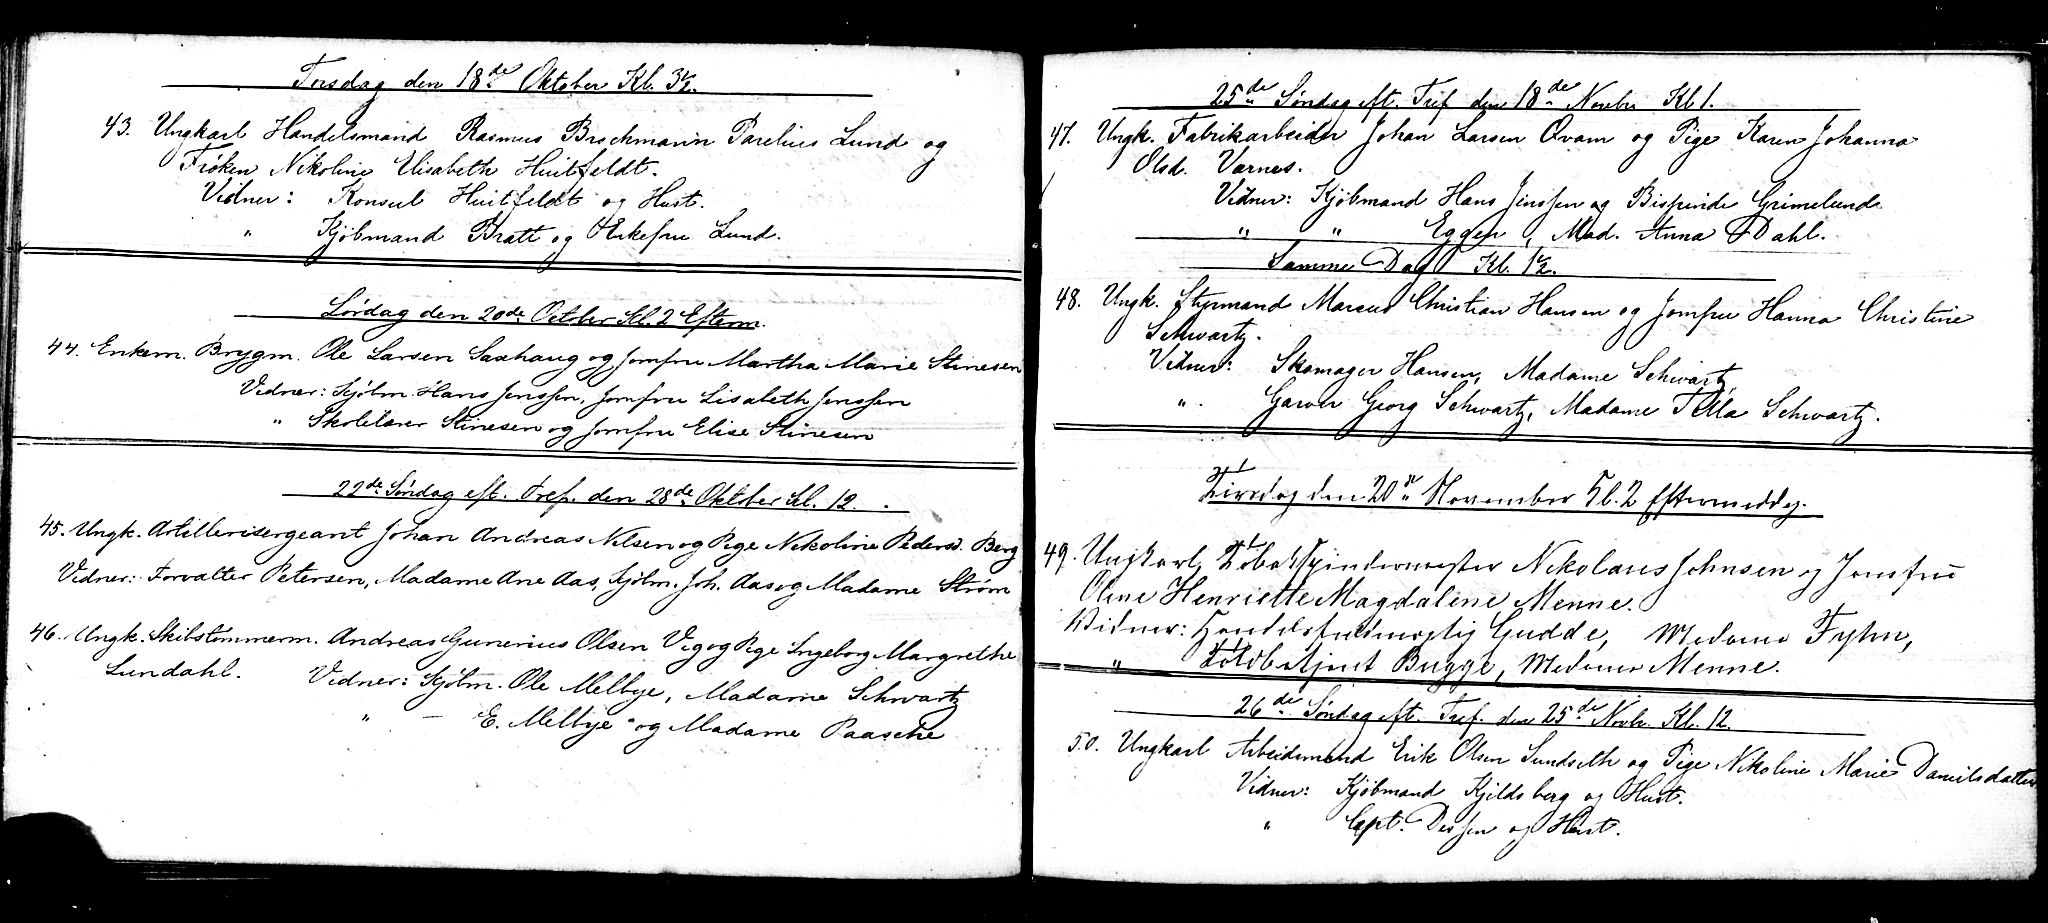 Torsdag den 18de Oktober Kl. 3½.
43. Ungkarl Handelsmand Rasmus Brochmann Parelius Lund og
Frøken Nikoline Elisabeth Huitfeldt.
Vidner: Konsul Huitfeldt og Hust.
" Kjøbmand Bratt og Enkefru Lund.
Lørdag den 20de October Kl. 2 Efterm.
44. Enkem. Brygm. Ole Larsen Saxhaug og Jomfru Martha Marie Stinesen
Vidner: Kjøbm. Hans Jenssen, Jomfru Lisabeth Jenssen
" Skolelærer Stinesen og Jomfru Elise Stinesen
22de Søndag eft. Tref. den 28de Oktober Kl. 12.
45. Ungk. Artillerisergeant Johan Andreas Nilsen og Pige Nikoline Pedersd. Berg
Vidner: Forvalter Petersen, Madame Ane Aas, Kjøbm. Joh. Aas og Madame Strøm
46. Ungk. Skibstømmerm. Andreas Gunerius Olsen Vig og Pige Ingeborg Margrethe
Lundahl. Vidner: Kjøbm. Ole Melbye, Madame Schwartz
" — E. Melbye og Madame Paasche
25de Søndag eft. Tref den 18de Novbr Kl 1.
47. Ungk. Fabrikarbeider Johan Larsen Qvam og Pige Karen Johanna
Olsd. Værnes.
Vidner: Kjøbmand Hans Jenssen og Bispinde Grimelund
" " Eggen, Mad. Anna Dahl.
Samme Dag Kl. 1½.
48. Ungk. Styrmand Marcus Christian Hansen og Jomfru Hanna Christine
Schwartz.
Vidner: Skomager Hansen, Madame Schwartz
" Garver Georg Schwartz, Madame Schwartz.
Tirsdag den 20de November Kl. 2 Eftermiddag.
49. Ungkarl, Tobakspindermester Nikolaus Johnsen og Jomfru
Oline Henriette Magdalene Menne.
Vidner: Handelsfuldmægtig Gudde, Madame Fyhn,
" Toldbetjent Bugge, Madame Menne.
26de Søndag eft. Tref. den 25de Novbr. Kl. 12.
50. Ungkarl Arbeidsmand Erik Olsen Sundseth og Pige Nikoline Marie Danielsdatter
Vidner: Kjøbmand Kjeldsberg og Hust.
" Capt. Dessen og Hust.